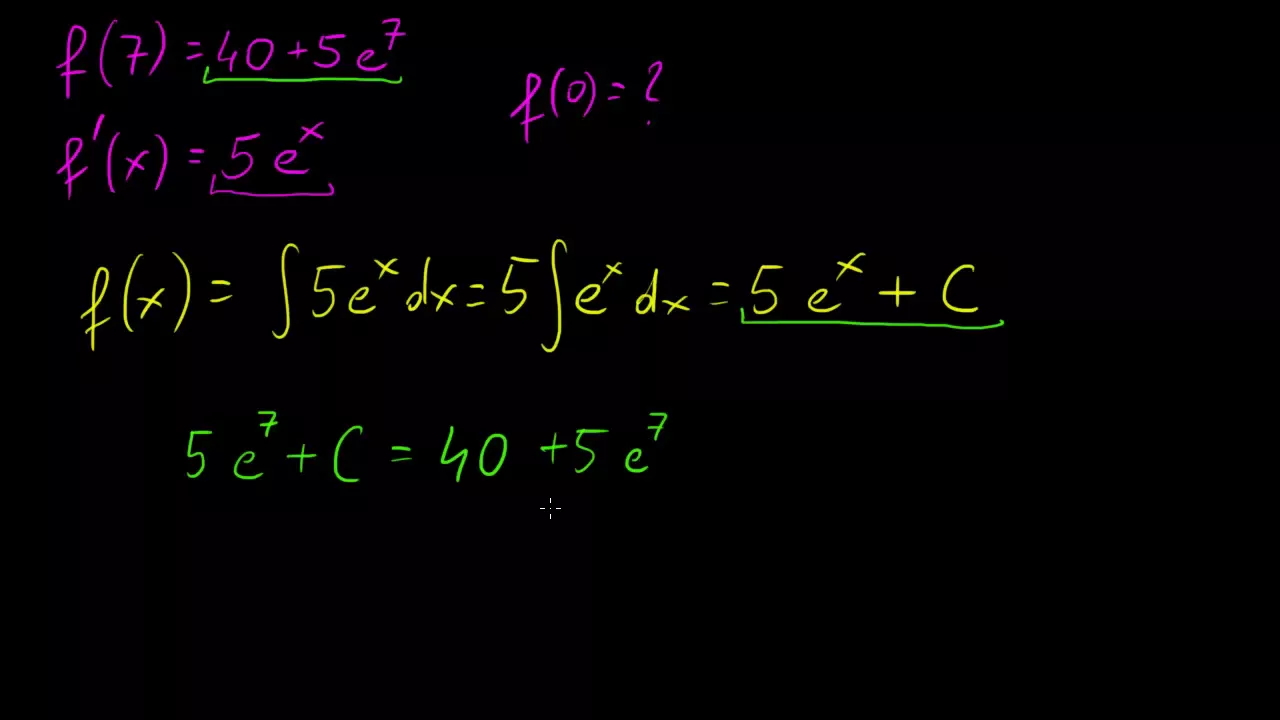 f(7) = 40 + 5e^7
f(0) = ?
f'(x) = 5e^x
f(x) = ∫5e^x dx = 5∫e^x dx = 5e^x + C
5e^7 + C = 40 + 5e^7